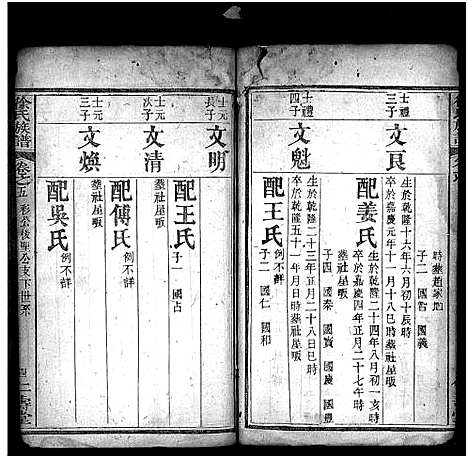 時葬趙家地
子二 國智 國義
士禮
三子
文良
生於乾隆十六年六月初十辰時
卒於嘉慶元年十一月十八巳時葬社星畈
配姜氏
生於乾隆二十四年八月初一亥時
卒於嘉慶四年正月二十七午時
子四 國泰 國寶 國慶 國豐
士禮
四子
文魁
生於乾隆二十三年正月二十八日巳時
卒於乾隆五十一年月日時葬社星畈
配王氏
例不詳
子二 國仁 國和
士元
長子
文明
配王氏
葬社星畈
子一 國古
士元
次子
文清
葬社星畈
配傅氏
例不詳
士元
三子
文煥
配吳氏
例不詳
徐氏族譜
公支下世系